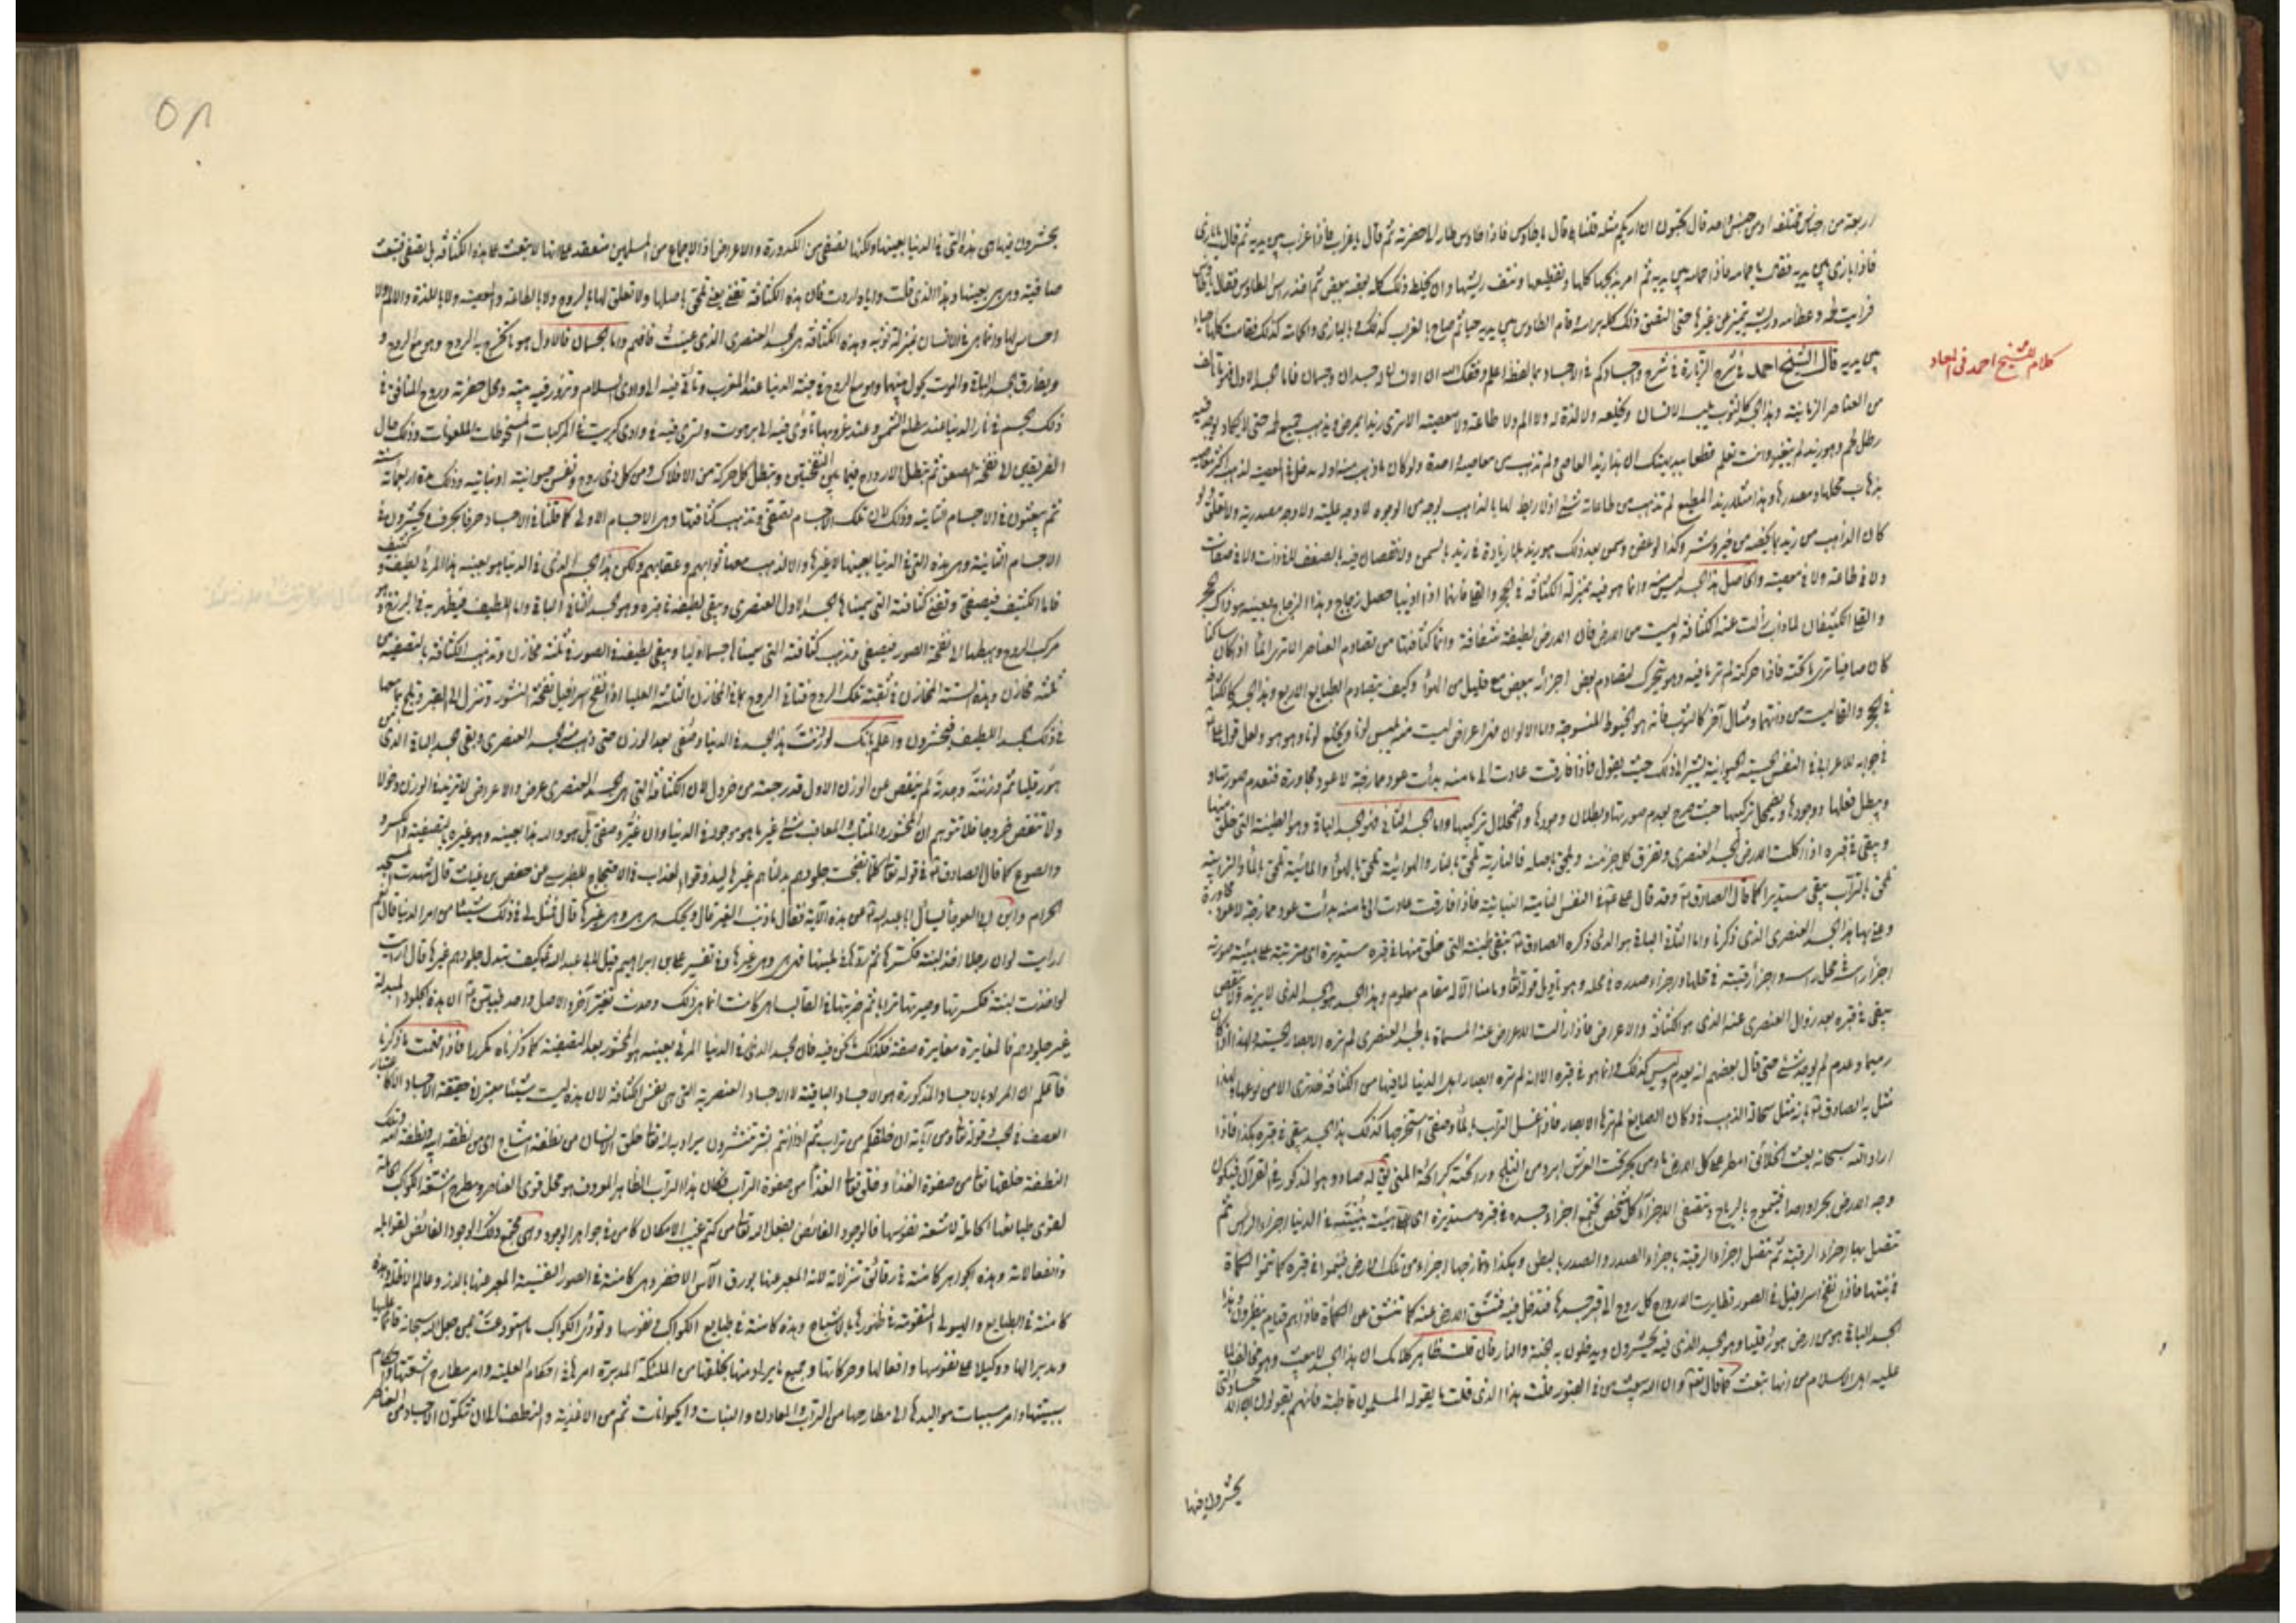 اربعة من اجناس مختلفة او من جنس واحد قال تحبون ان اريكم مثله قلنا بلى قال يا طاوس فاذا طاوس طار الى حضرته ثم قال يا غراب فاذا غراب بين يديه ثم قال يا بازي
فاذا بازي بين يديه فقال يا حمامه فاذا حمامه بين يديه ثم امر بذبحها كلها وتقطيعها ونتف ريشها وان يخلط ذلك كله بعضه ببعض ثم اخذ راس الطاوس فقال يا طاوس
فرايت لحمه وعظامه وريشه يتميز من غيرها حتى التصق ذلك كله براسه وقام الطاوس بين يديه حيا ثم صاح بالغراب كذلك وبالبازي والحمامة كذلك فقامت كلها احياء
بين يديه قال الشيخ احمد في شرح الزيارة في شرح واجسادكم في الاجساد بما لفظه اعلم وفقك الله ان الانسان له جسدان وجسمان فاما الجسد الاول فهو ما تالف
كلام الشيخ احمد في المعاد
من العناصر الزمانية وهذا الجسد كالثوب يلبسه الانسان ويخلعه ولا لذة له ولا الم ولا طاعة ولا معصية الا ترى زيدا يمرض ويذهب جميع لحمه حتى لا يكاد يوجد فيه
رطل لحم وهو زيد لم يتغير وانت تعلم قطعا ببديهتك ان هذا زيد العاصي ولم تذهب من معاصيه واحدة ولو كان ما ذهب منه او له مدخل في المعصية لذهب اكثر معاصيه
بذهاب محلها ومصدرها وهذا مثلا زيد المطيع لم تذهب من طاعاته شيء اذ لا ربط لها بالذاهب بوجه من الوجوه لا وجه علية ولا وجه مصدرية ولا تعلق ولو
كان الذاهب من زيد ما يخصه من خير وشر وكذا لو عفن وسمن بعد ذلك هو زيد بلا زيادة في زيد بالسمن ولا نقصان فيه بالضعف لا في ذات ولا في صفات
ولا في طاعة ولا في معصية والحاصل هذا الجسد ليس منه وانما هو فيه بمنزلة الكثافة في الحجر والقلي فانهما اذا اذيبا حصل زجاج وهذا الزجاج بعينه هو ذاك الحجر
والقلي الكثيفان لما ذابا زالت عنه الكثافة وليست من الارض فان الارض لطيفة شفافة وانما كثافتها من تصادم العناصر الا ترى الماء اذا كان ساكنا
كان صافيا ترى ما تحته فاذا حركته لم تر ما فيه وهو يتحرك لتصادم بعض اجزائه ببعض مع قليل من الهواء وكيف بتصادم الطبايع الاربع وهذا الجسد كالكثافة
في الحجر والقلي ليست من ذاتهما ومثال آخر كالثوب فانه هو الخيوط المنسوجة واما الالوان فهي اعراض ليست منه يلبس لونا ويخلع لونا وهو هو ولعل قول علي ع
في جوابه للاعرابي في النفس الحسية الحيوانية يشير الى ذلك حيث يقول فاذا فارقت عادت الى ما منه بدئت عود ممازجة لا عود مجاورة فتعدم صورتها و
ويبطل فعلها ووجودها ويضمحل تركيبها حيث صرح بعدم صورتها وبطلان وجودها واضمحلال تركيبها واما الجسد الثاني فهو الجسد الباقي وهو الطينة التي خلق منها
ويبقى في قبره اذا اكلت الارض الجسد العنصري وتفرق كل جزء منه ولحق باصله فالنارية تلحق بالنار والهوائية تلحق بالهواء والمائية تلحق بالماء والترابية
تلحق بالتراب يبقى مستديرا كما قال الصادق ع وقد قال علي ع في النفس النامية النباتية فاذا فارقت عادت الى ما منه بدئت عود ممازجة لا عود مجاورة
وعنى بها هذا الجسد العنصري الذي ذكرنا واما الثاني الباقي هو الذي ذكره الصادق ع تبقى طينته التي خلق منها في قبره مستديرة اي مترتبة على هيئة صورته
اجزاء راسه في محل راسه واجزاء رقبته في محلها واجزاء صدره في محله وهو تاويل قوله تعالى وما منا الا له مقام معلوم وهذا الجسد هو الجسد الذي لا يزيد ولا ينقص
يبقى في قبره بعد زوال العنصري عنه الذي هو الكثافة والاعراض فاذا زالت الاعراض عنه المسماة بالجسد العنصري لم تره الابصار الحسية ولهذا اذا كان
رميما وعدم لم يوجد شيء حتى قال بعضهم انه يعدم وليس كذلك وانما هو في قبره الا انه لم تره ابصار اهل الدنيا لما فيها من الكثافة فلا ترى الا من نوعها ولهذا
مثل به الصادق ع بانه مثل سحالة الذهب في دكان الصايغ لم ترها الابصار فاذا غسل التراب بالماء وصفي استخرجها كذلك هذا الجسد يبقى في قبره هكذا فاذا
اراد الله سبحانه بعث الخلائق امطر على كل الارض ماء من بحر تحت العرش ابرد من الثلج ورائحته كرائحة المني يقال له صاد وهو المذكور في القرآن فيكون
وجه الارض بحرا واحدا فيتموج بالرياح وتتصفى الاجزاء كل شخص تجتمع اجزاء جسده في قبره مستديرة اي على هيئة بنيته في الدنيا اجزاء الراس ثم
تتصل بها اجزاء الرقبة ثم تتصل اجزاء الرقبة باجزاء الصدر والصدر بالبطن وهكذا وتمازجها اجزاء من تلك الارض فينموا في قبره كما تنموا الكمأة
في نبتها فاذا نفخ اسرافيل في الصور تطايرت الارواح كل روح الى قبر جسدها فتدخل فيه فتنشق الارض عنه كما تنشق عن الكمأة فاذا هم قيام ينظرون وهذا
الجسد الباقي هو من ارض هورقليا وهو الجسد الذي فيه يحشرون ويدخلون به الجنة والنار فان قلت ظاهر كلامك ان هذا الجسد لا يبعث وهو مخالف لما
عليه اهل الاسلام من انها تبعث كما قال تعالى وان الله يبعث من في القبور قلت هذا الذي قلت ما يقوله المسلمون قاطبة فانهم يقولون ان الاجساد التي
يحشرون فيها
٥٨
يحشرون فيها هي هذه التي في الدنيا بعينها ولكنها تصفى من الكدورة والاعراض اذ الاجماع من المسلمين منعقد على انها لا تبعث على هذه الكثافة بل تصفى فتبعث
صافية وهي هي بعينها وهذا الذي قلت واياه اردت فان هذه الكثافة تفنى يعني تلحق باصلها ولا تعلق لها بالروح ولا بالطاعة والمعصية ولا باللذة والالم ولا
احساس لها وانما هي في الانسان بمنزلة ثوبه وهذه الكثافة هي الجسد العنصري الذي عنيت فافهم واما الجسمان فالاول هو ما تخرج به الروح وهو مع الروح و
ويفارق الجسد الباقي والموت يحول بينهما وهو مع الروح في جنة الدنيا عند المغرب وتاتي فيه الى وادي السلام وتزور فيه بيته ومحل حضرته وروح المنافق في
ذلك الجسم في نار الدنيا عند مطلع الشمس وعند غروبها تاوي فيه الى برهوت وتسري فيه في وادي كبريت في المركبات المسخوطات الملعونات وذلك حال
الفريقين الى نفخة الصعق ثم تبطل الارواح فيما بين النفختين وتبطل كل حركة من الافلاك ومن كل ذي روح ونفس حيوانية او نباتية وذلك مدة اربعمائة سنة
ثم يبعثون في الاجسام الثانية وذلك لان تلك الاجسام تصفى وتذهب كثافتها وهي الاجسام الاولى كما قلنا في الاجساد حرفا بحرف فيحشرون في
الاجسام الثانية وهي هذه التي في الدنيا بعينها لا غيرها والا لذهب معها ثوابهم وعقابهم ولكن هذا الجسم الذي في الدنيا هو بعينه هذا المرئي لطيف وكثيف
فاما الكثيف فيصفى وتفنى كثافته التي سميناها الجسد الاول العنصري ويبقى لطيفه في قبره وهو الجسد الثاني الباقي واما اللطيف فيظهر به في البرزخ وهو
مركب الروح وهيكلها الى نفخة الصور فيصفى وتذهب كثافته التي سميناها جسما اوليا ويبقى لطيفه في الصور في ثلثة مخازن وتذهب الكثافة بالتصفية من
ثلثة مخازن وهذه الستة المخازن في ثقبة تلك الروح فتاتي الروح بما في المخازن الثلاثة العليا اذا نفخ اسرافيل نفخة النشور وتنزل الى القبر وتلج بما معها
في ذلك الجسد اللطيف فيحشرون واعلم بانك لو وزنت هذا الجسد في الدنيا وصفي بعد الوزن حتى ذهب منه الجسد العنصري وبقي الجسد الباقي الذي من
هورقليا ثم وزنته وجدته لم ينقص عن الوزن الاول قدر حبة من خردل لان الكثافة التي هي الجسد العنصري عرض والاعراض لا تزيد في الوزن دخولا
ولا تنقص خروجا فلا تتوهم ان المحشور والمثاب والمعاقب شيء غير ما هو موجود في الدنيا وان غير وصفي بل هو والله هذا بعينه وهو غيره بالتصفية والكسر و
والصوغ كما قال الصادق ع في قوله تعالى كلما نضجت جلودهم بدلناهم غيرها ليذوقوا العذاب في الاحتجاج للطبرسي عن حفص بن غياث قال شهدت المسجد
الحرام وابن ابي العوجاء يسأل ابا عبد الله ع عن هذه الآية فقال ما ذنب الغير قال ويحك هي هي وهي غيرها قال فمثل لي في ذلك شيئا من امر الدنيا قال نعم
ارايت لو ان رجلا اخذ لبنة فكسرها ثم ردها في ملبنها فهي هي وهي غيرها وفي تفسير علي بن ابراهيم قيل لابي عبد الله ع كيف تبدل جلودهم غيرها قال ارايت
لو اخذت لبنة فكسرتها وصيرتها ترابا ثم ضربتها في القالب اهي كانت انما هي ذلك وحدث تغير آخر والاصل واحد فبين ع ان هذه الجلود المبدلة
غير جلودهم فالمغايرة مغايرة صفة فكذلك ما نحن فيه فان الجسد الذي في الدنيا المرئي بعينه هو المحشور بعد التصفية كما ذكرناه مكررا فاذا فهمت ما ذكرنا
فاعلم ان المراد بالاجساد المذكورة هو الاجساد الباقية لا الاجساد العنصرية التي هي نفس الكثافة لان هذه ليست شيئا معتبرا في حقيقة الاجساد الا كاعتبار
العصف في الحب وقوله تعالى ومن آياته ان خلقكم من تراب ثم اذا انتم بشر تنتشرون يراد به انه تعالى خلق الانسان من نطفة امشاج اي من نطفة ابيه ونطفة امه وتلك
النطفة خلقها تعالى من صفوة الغذاء وخلق تعالى الغذاء من صفوة التراب فكان هذا التراب الظاهر المعروف هو محل قوى العناصر ومطرح اشعة الكواكب الحاملة
لقوى طبائعها الحاملة لاشعة نفوسها فالوجود الفائض بفعل الله تعالى من كتم غيب الامكان كامن في جواهر الوجود وهي تجمع ذلك الوجود الفائض لقوابله
وانفعالاته وهذه الجواهر كامنة في رقائق تنزلاته لانه المعبر عنها بورق الآس الاخضر وهي كامنة في الصور النفسية المعبر عنها بالذر وعالم الاظلة وهذه
كامنة في الطبايع والهيولى المتقومة في ظهورها بالاشباح وهذه كامنة في طبايع الكواكب في نفوسها وتؤدي الكواكب ما استودعت الى من جعل الله سبحانه قائما عليها
ومدبرا لها ووكيلا على نفوسها وافعالها وحركاتها وجميع ما يراد منها بخلقها من الملئكة المدبرة امرها في احكام العلية وامر مطارح اشعتها واحكام
سببيتها وامر مسببات مواليدها الى مطارحها من التراب والمعادن والنبات والحيوانات ثم من الاغذية والنطف الى ان تتكون الاجساد من العناصر